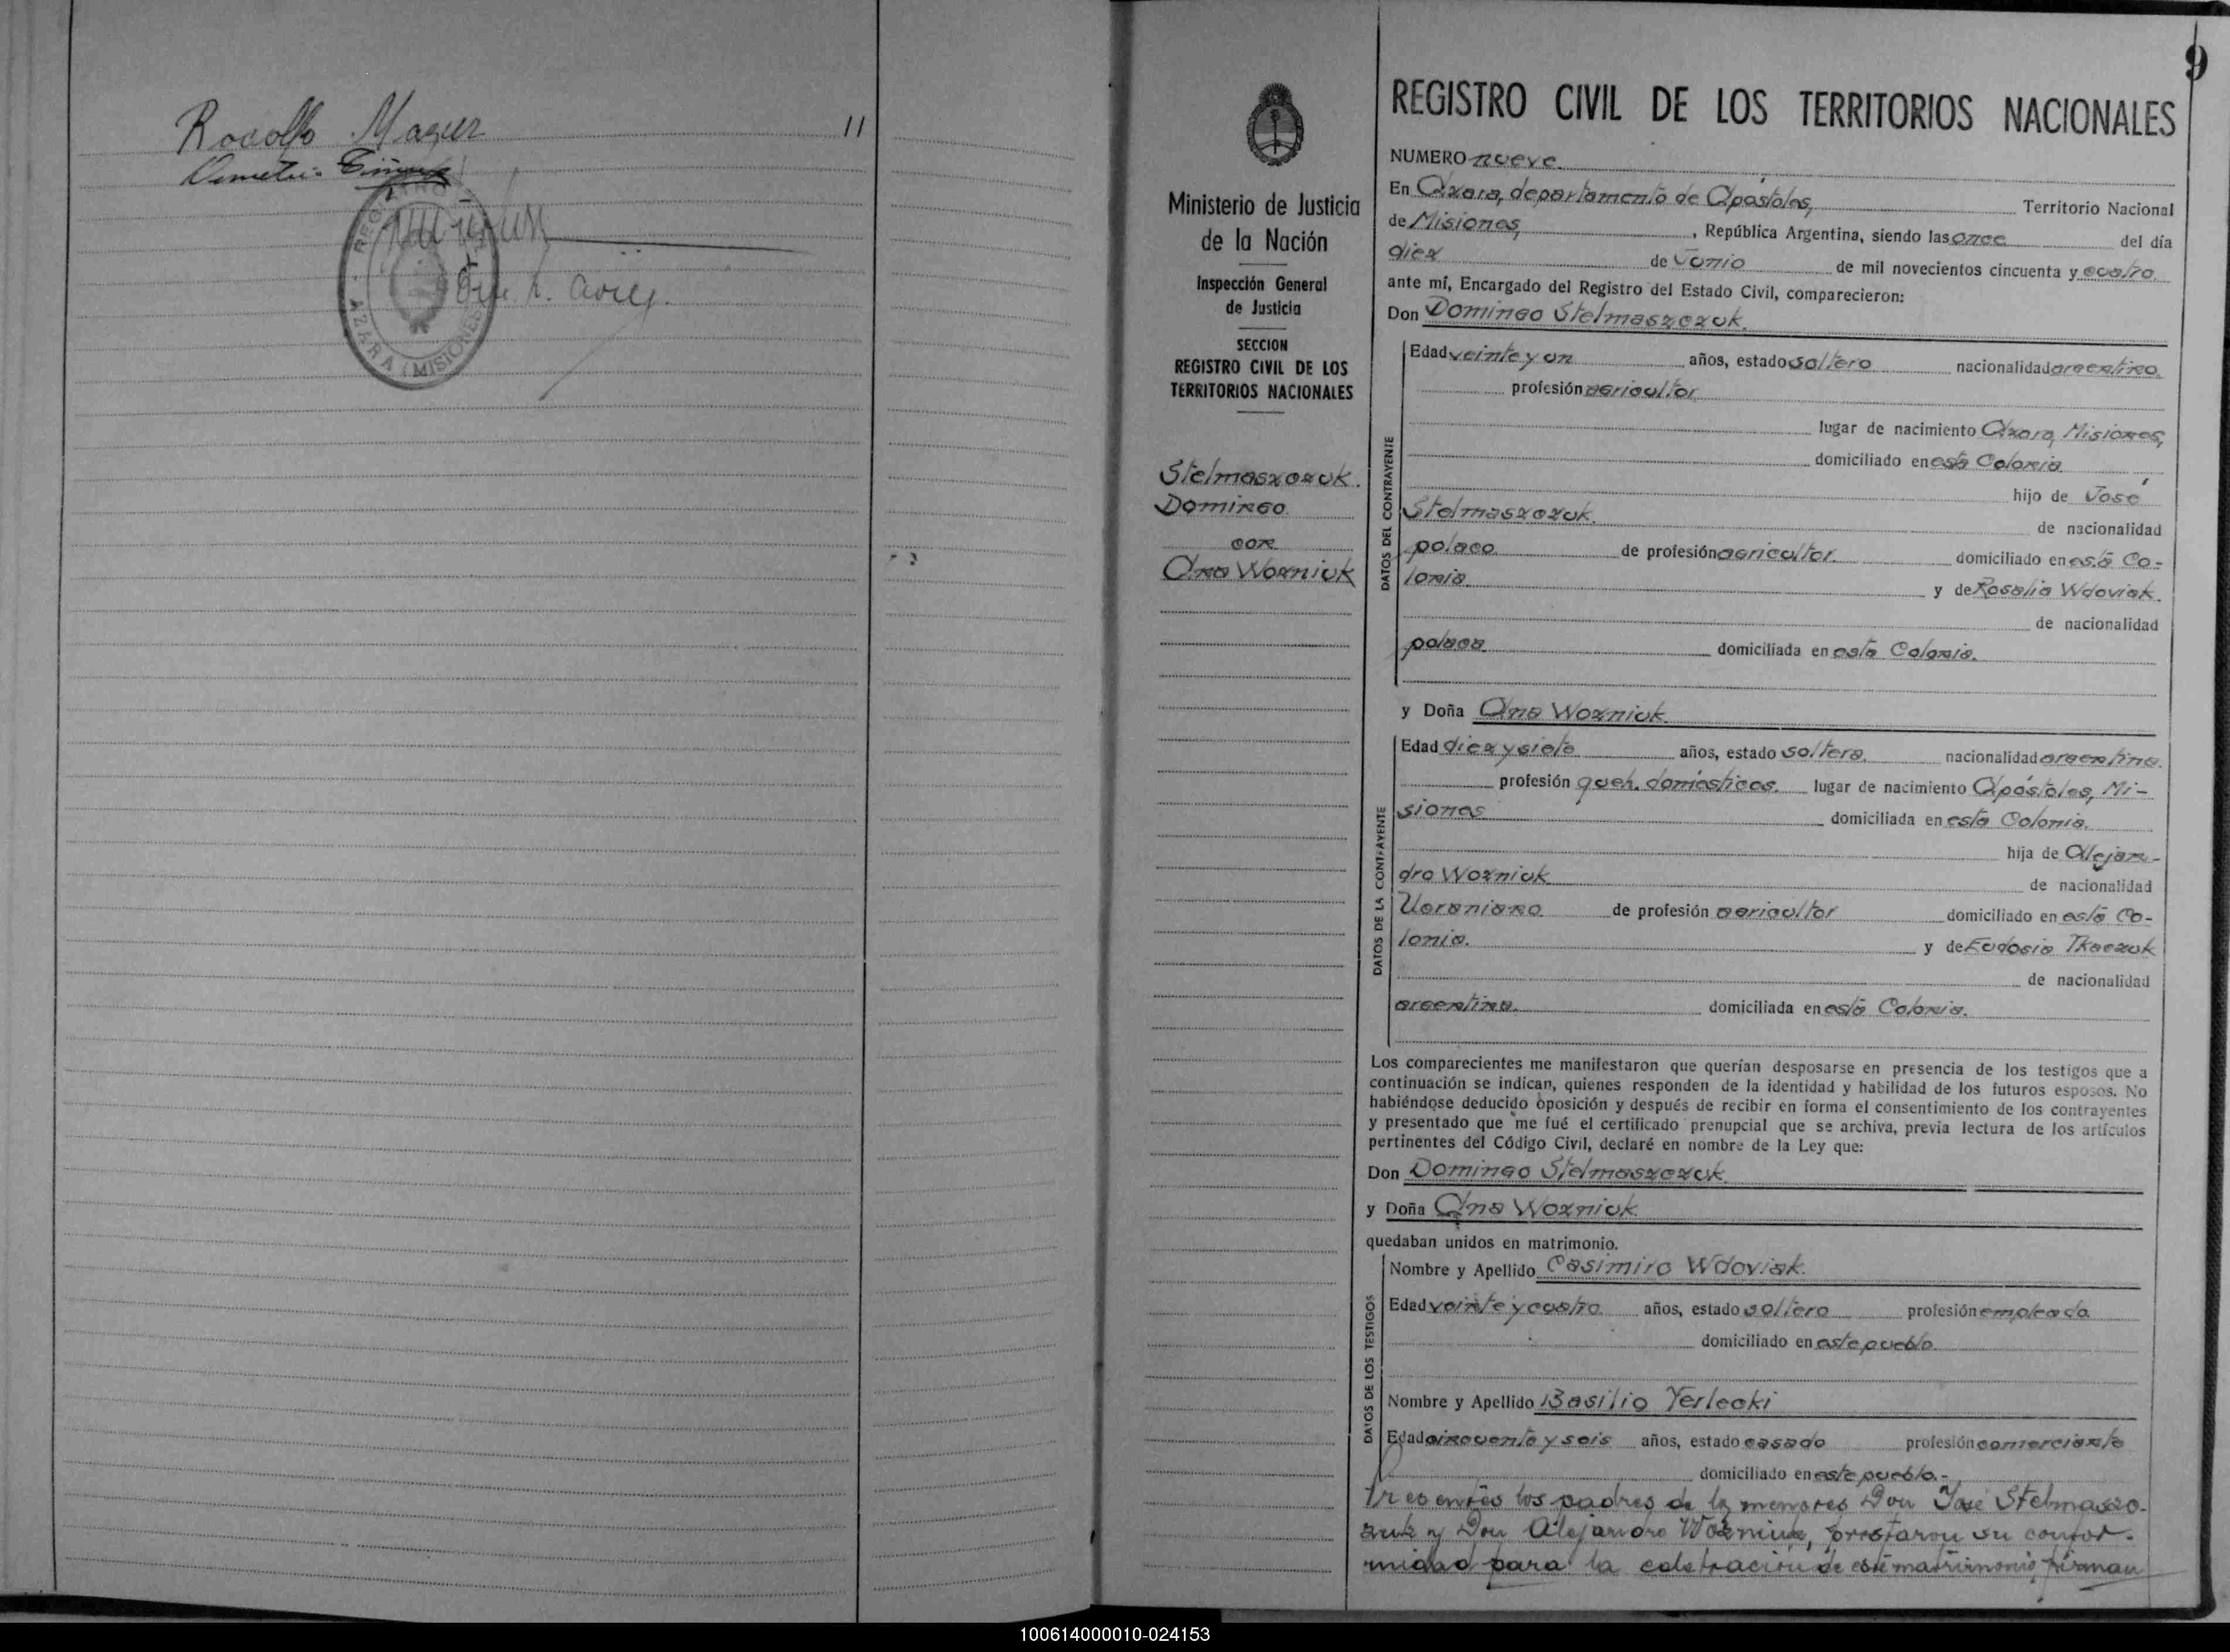 Rodolfo Mazur
11
Demetrio
REGISTRO
AZARA (MISIONES)
9
REGISTRO CIVIL DE LOS TERRITORIOS NACIONALES
Ministerio de Justicia
de la Nación
Inspección General
de Justicia
SECCION
REGISTRO CIVIL DE LOS
TERRITORIOS NACIONALES
Stelmaszczuk.
Domingo
con
Ana Wozniuk
NUMERO nueve.
En Azara, departamento de Apóstoles, Territorio Nacional
de Misiones, , República Argentina, siendo las once del día
diez de Junio de mil novecientos cincuenta y cuatro
ante mí, Encargado del Registro del Estado Civil, comparecieron:
Don Domingo Stelmaszczuk.
DATOS DEL CONTRAYENTE
Edad veinte y un años, estado soltero nacionalidad argentino
profesión agricultor
lugar de nacimiento Azara, Misiones,
domiciliado en esta Colonia
hijo de José
Stelmaszczuk. de nacionalidad
polaco de profesión agricultor. domiciliado en esta Co-
lonia y de Rosalia Wdoviak.
de nacionalidad
polaca domiciliada en esta Colonia.
y Doña Ana Wozniuk.
DATOS DE LA CONTRAYENTE
Edad diez y siete años, estado soltera. nacionalidad argentina.
profesión queh. domésticos. lugar de nacimiento Apóstoles, Mi-
siones domiciliada en esta Colonia.
hija de Alejan-
dro Wozniuk de nacionalidad
Ucraniano de profesión agricultor domiciliado en esta Co-
lonia. y de Eudosia Tkaczuk
de nacionalidad
argentina. domiciliada en esta Colonia.
Los comparecientes me manifestaron que querían desposarse en presencia de los testigos que a
continuación se indican, quienes responden de la identidad y habilidad de los futuros esposos. No
habiéndose deducido oposición y después de recibir en forma el consentimiento de los contrayentes
y presentado que me fué el certificado prenupcial que se archiva, previa lectura de los artículos
pertinentes del Código Civil, declaré en nombre de la Ley que:
Don Domingo Stelmaszczuk.
y Doña Ana Wozniuk.
quedaban unidos en matrimonio.
DATOS DE LOS TESTIGOS
Nombre y Apellido Casimiro Wdoviak.
Edad veinte y cuatro años, estado soltero profesión empleado
domiciliado en este pueblo
Nombre y Apellido Basilio Yerlecki
Edad cincuenta y seis años, estado casado profesión comerciante
domiciliado en este pueblo.-
Presentes los padres de los menores Don José Stelmaszc-
zuk y Don Alejandro Wozniuk, prestaron su confor-
midad para la celebración de este matrimonio, firman
100614000010-024153